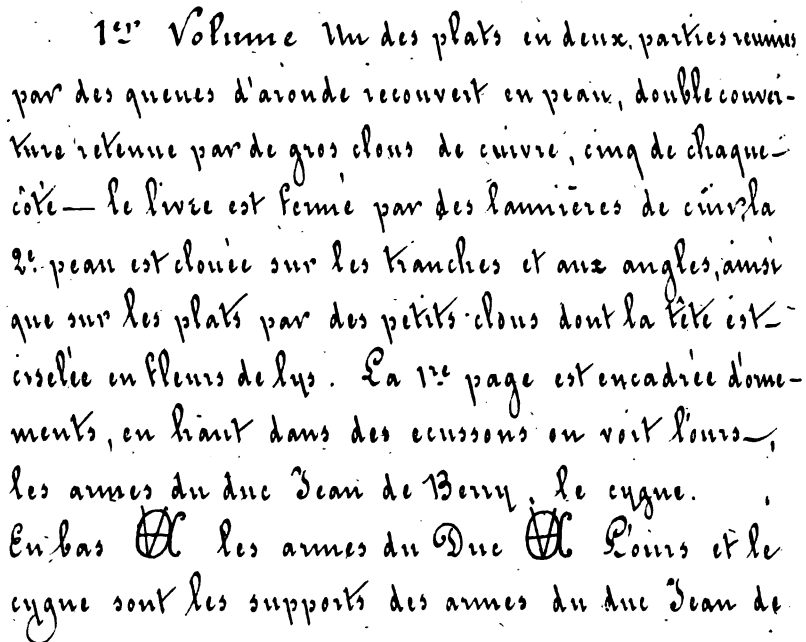 1er Volume Un des plats en deux parties reunies
par des queues d'aronde recouvert en peau, double couver-
ture retenue par de gros clous de cuivre, cinq de chaque
côté — le livre est fermé par des lannières de cuir, la
2e peau est clouée sur les tranches et aux angles, ainsi
que sur les plats par des petits clous dont la tête est
ciselée en fleurs de lys. La 1re page est encadrée d'orne-
ments, en haut dans des ecussons on voit l'ours,
les armes du duc Jean de Berry, le cygne.
En bas les armes du Duc L'ours et le
cygne sont les supports des armes du duc Jean de